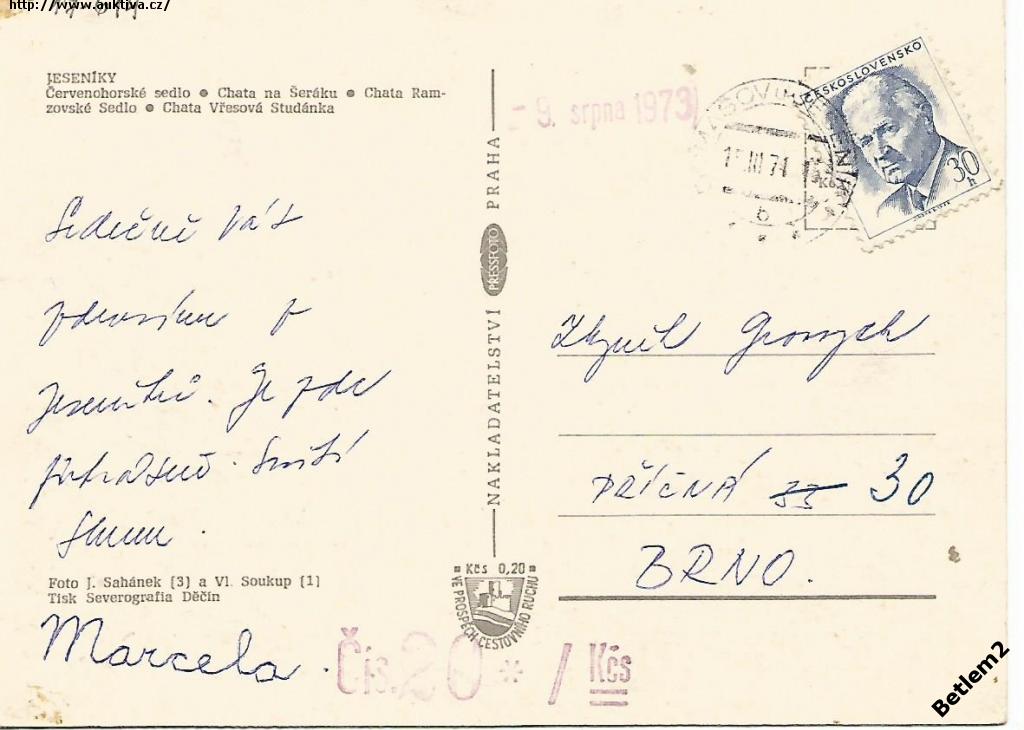 http://www.auktiva.cz/
JESENÍKY
Červenohorské sedlo • Chata na Šeráku • Chata Ram-
zovské Sedlo • Chata Vřesová Studánka
- 9. srpna 1973
ČESKOSLOVENSKO
30
h
III 74
b
NAKLADATELSTVÍ PRESSFOTO PRAHA
Srdečně Vás
zdravíme z
Jeseníků. Je zde
Foto J. Sahánek (3) a Vl. Soukup (1)
Tisk Severografia Děčín
Marcela.
PŘÍČNÁ 30
BRNO.
Kčs 0,20
VE PROSPĚCH CESTOVNÍHO RUCHU
Čís. 20 * / Kčs
Betlem2